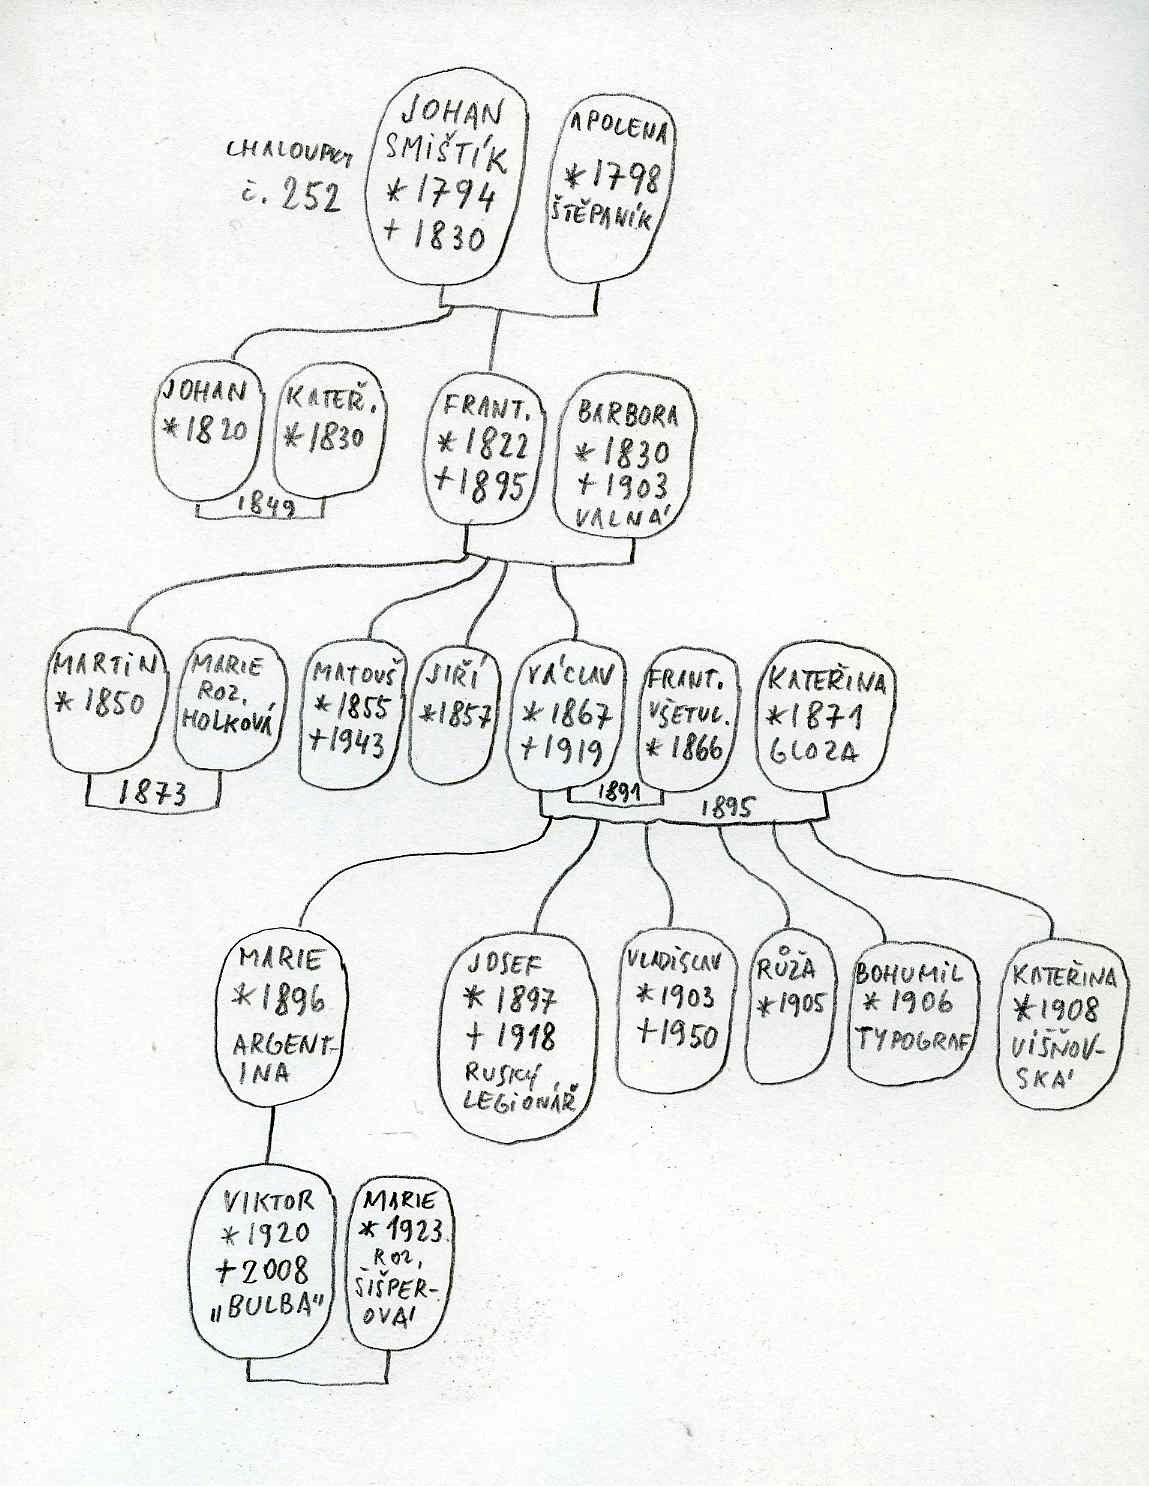 JOHAN
SMIŠTÍK
*1794
+1830
CHALOUPKY
č. 252
APOLENA
*1798
ŠTĚPANÍK
JOHAN
*1820
KATEŘ.
*1830
1849
FRANT.
*1822
+1895
BARBORA
*1830
+1903
VALNÁ
MARTIN
*1850
MARIE
ROZ.
HOLKOVÁ
1873
MATOUŠ
*1855
+1943
JIŘÍ
*1857
VÁCLAV
*1867
+1919
FRANT.
VŠETUL.
*1866
KATEŘINA
*1871
GLOZA
1891
1895
MARIE
*1896
ARGENT-
INA
JOSEF
*1897
+1918
RUSKÝ
LEGIONÁŘ
VLADISLAV
*1903
+1950
RŮŽA
*1905
BOHUMIL
*1906
TYPOGRAF
KATEŘINA
*1908
VIŠŇOV-
SKÁ
VIKTOR
*1920
+2008
„BULBA"
MARIE
*1923
ROZ.
ŠIŠPER-
OVÁ